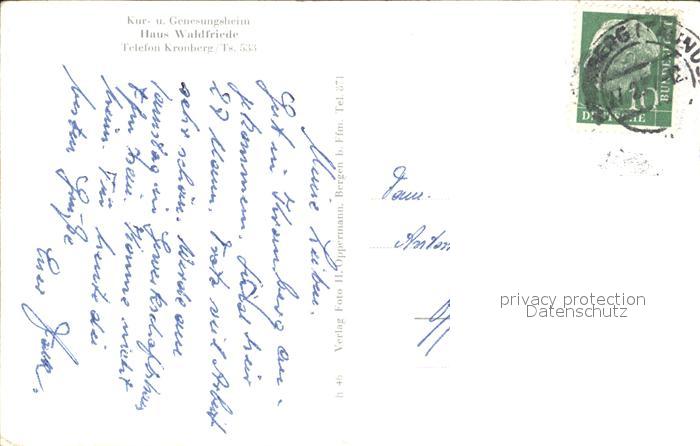 Kur- u. Genesungsheim
Haus Waldfriede
Telefon Kronberg/Ts. 533
Meine Lieben.
Gut in Kronberg an-
gekommen. Sind hier
27 Mann. Trotz viel Arbeit
sehr schön. Werde am
Samstag in Gewerkschaftshaus
Ffm sein. Komme nicht
heim. Für heute die
besten Grüße
Euer
h 46 Verlag Foto H. Oppermann, Bergen b. Ffm. Tel. 871
Fam.
Anton
10
DEUTSCHE
BUNDESPOST
privacy protection
Datenschutz